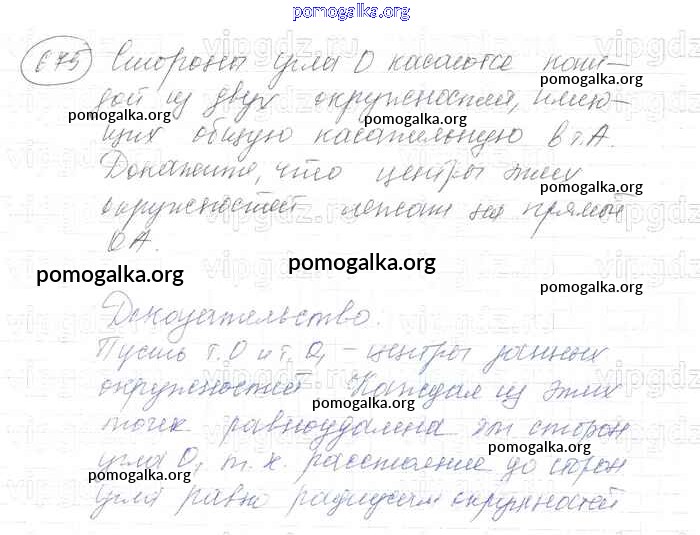 pomogalka.org
675 Стороны угла O касаются каж-
дой из двух окружностей, имею-
щих общую касательную в т. A.
Докажите, что центры этих
окружностей лежат на прямой
OA.
pomogalka.org
pomogalka.org
pomogalka.org
pomogalka.org
pomogalka.org
pomogalka.org
pomogalka.org
Доказательство:
Пусть т. O и т. O₁ – центры данных
окружностей Каждая из этих
pomogalka.org
точек равноудалена от сторон
pomogalka.org
угла O, т. к. расстояние до сторон
pomogalka.org
угла равно радиусам окружностей